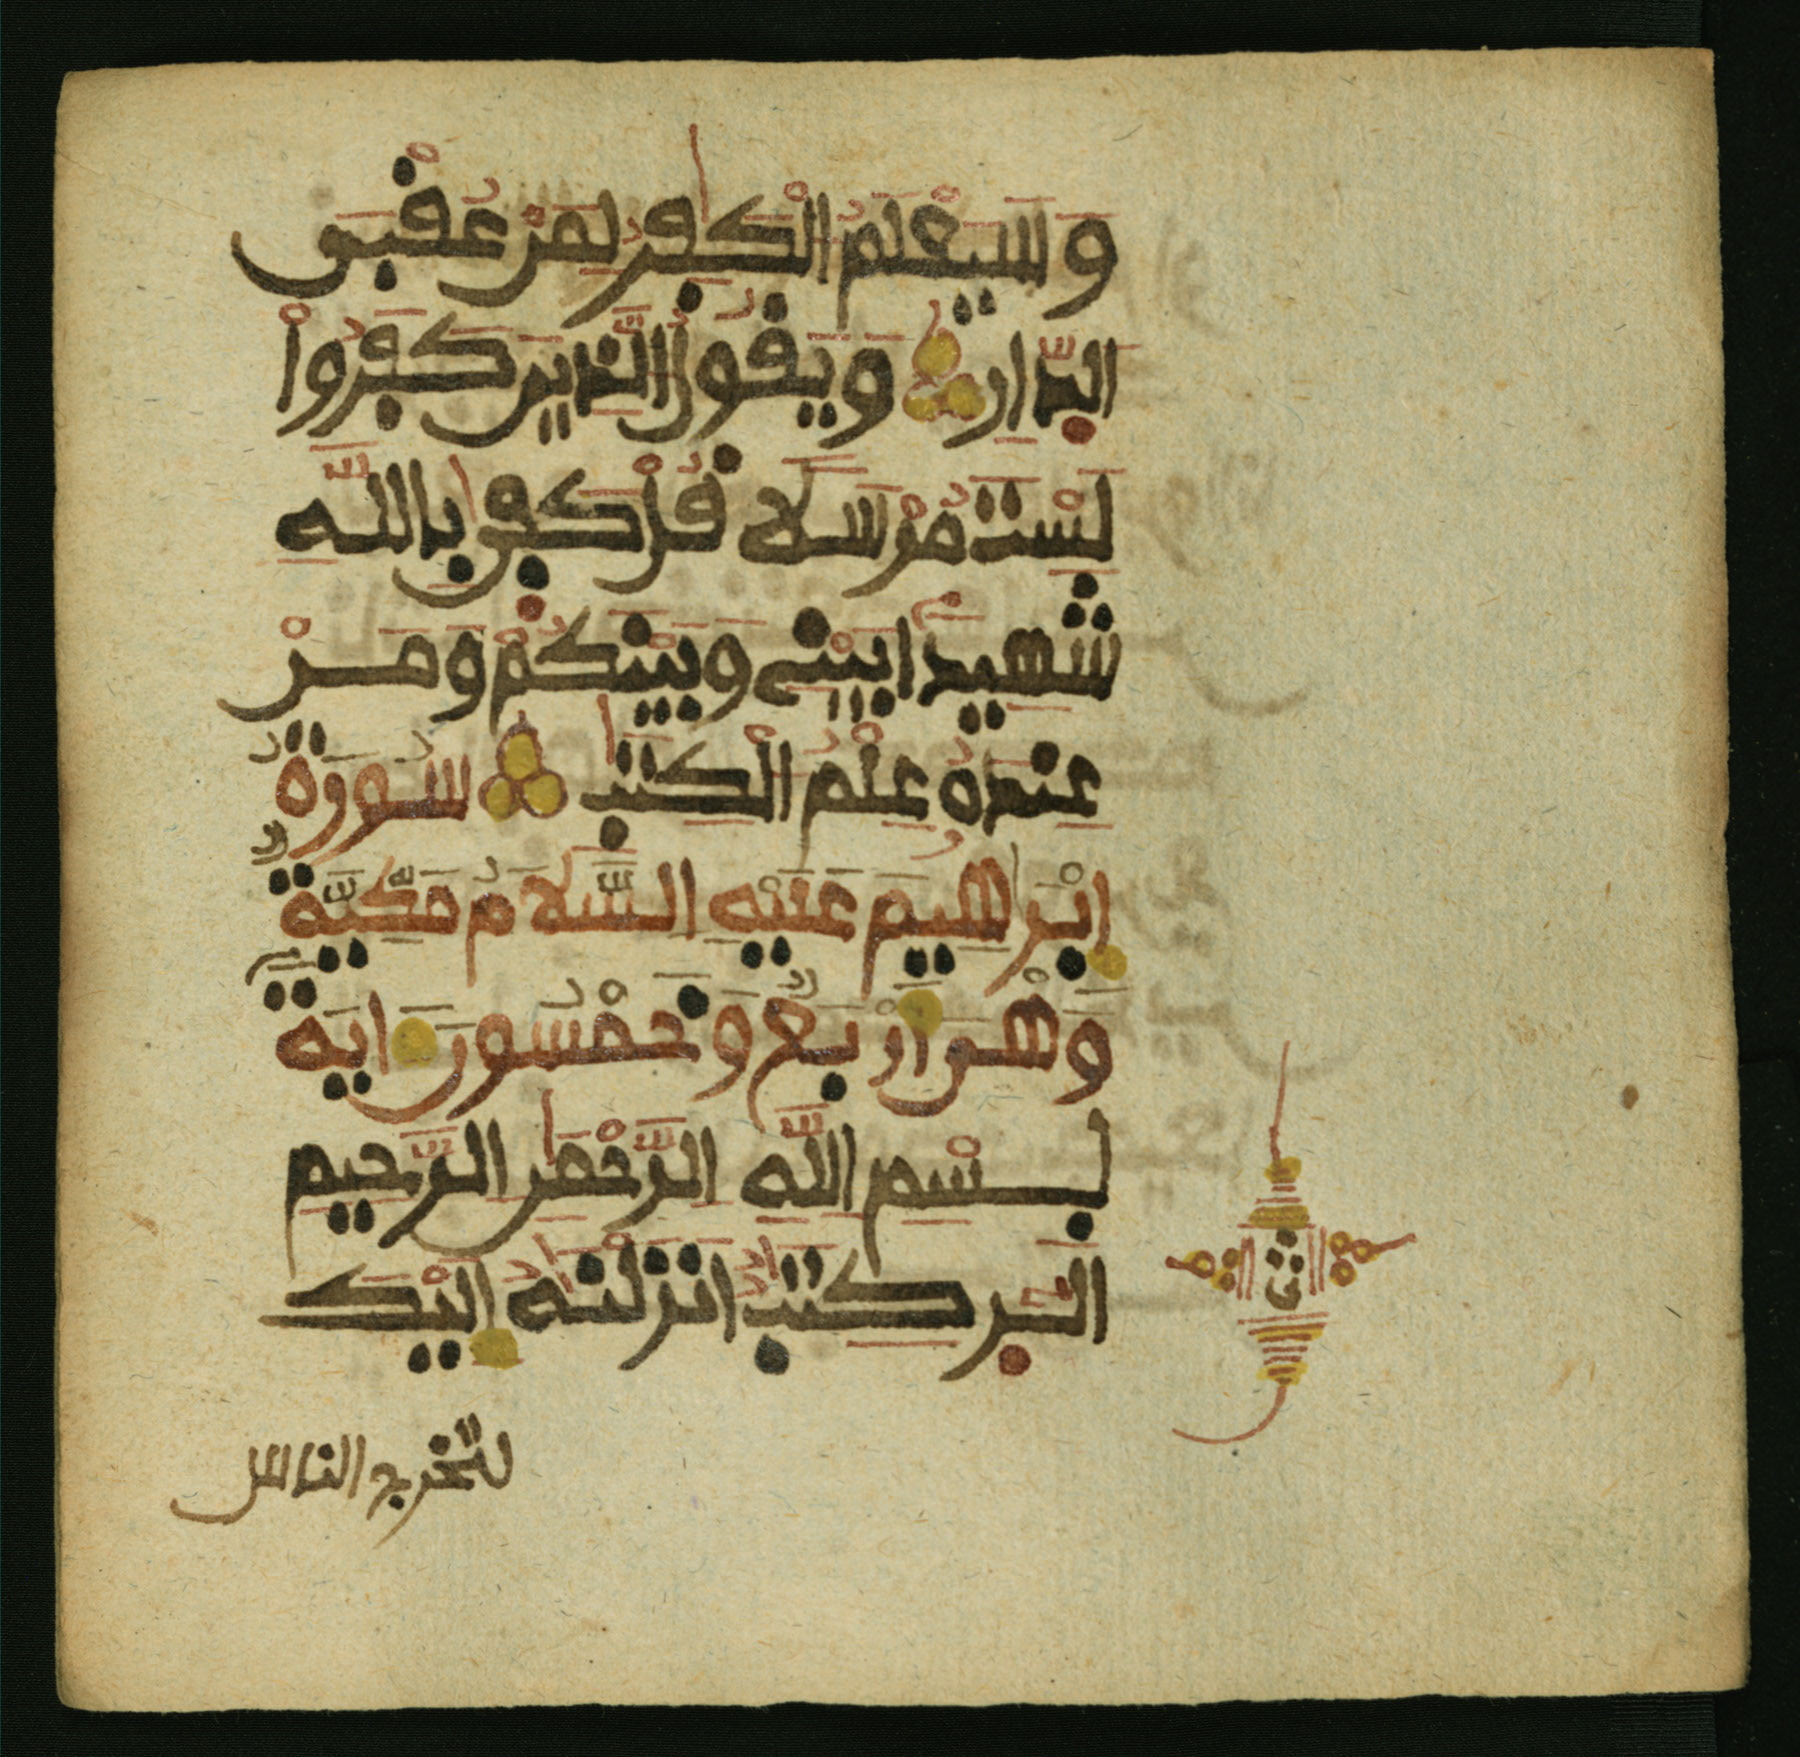 وَسَيَعْلَمُ الْكَٰفِرُ لِمَنْ عُقْبَى
الدّارِ وَيَقُولُ الَّذِينَ كَفَرُواْ
لَسْتَ مُرْسَلاً قُلْ كَفَىٰ بِاللَّهِ
شَهِيداً بَيْنِي وَبَيْنَكُمْ وَمَنْ
عِندَهُ عِلْمُ الْكِتَٰبِ سُورَةُ
إبْرَٰهِيمَ عَلَيْهِ السَّلَامُ مَكِّيَّةٌ
وَهْىَ أَرْبَعٌ وَخَمْسُونَ ايَةً
بِسْمِ اللَّهِ الرَّحْمَٰنِ الرَّحِيمِ
الَر كِتَٰبٌ انزَلْنَٰهُ إِلَيْكَ
لتخرج الناس